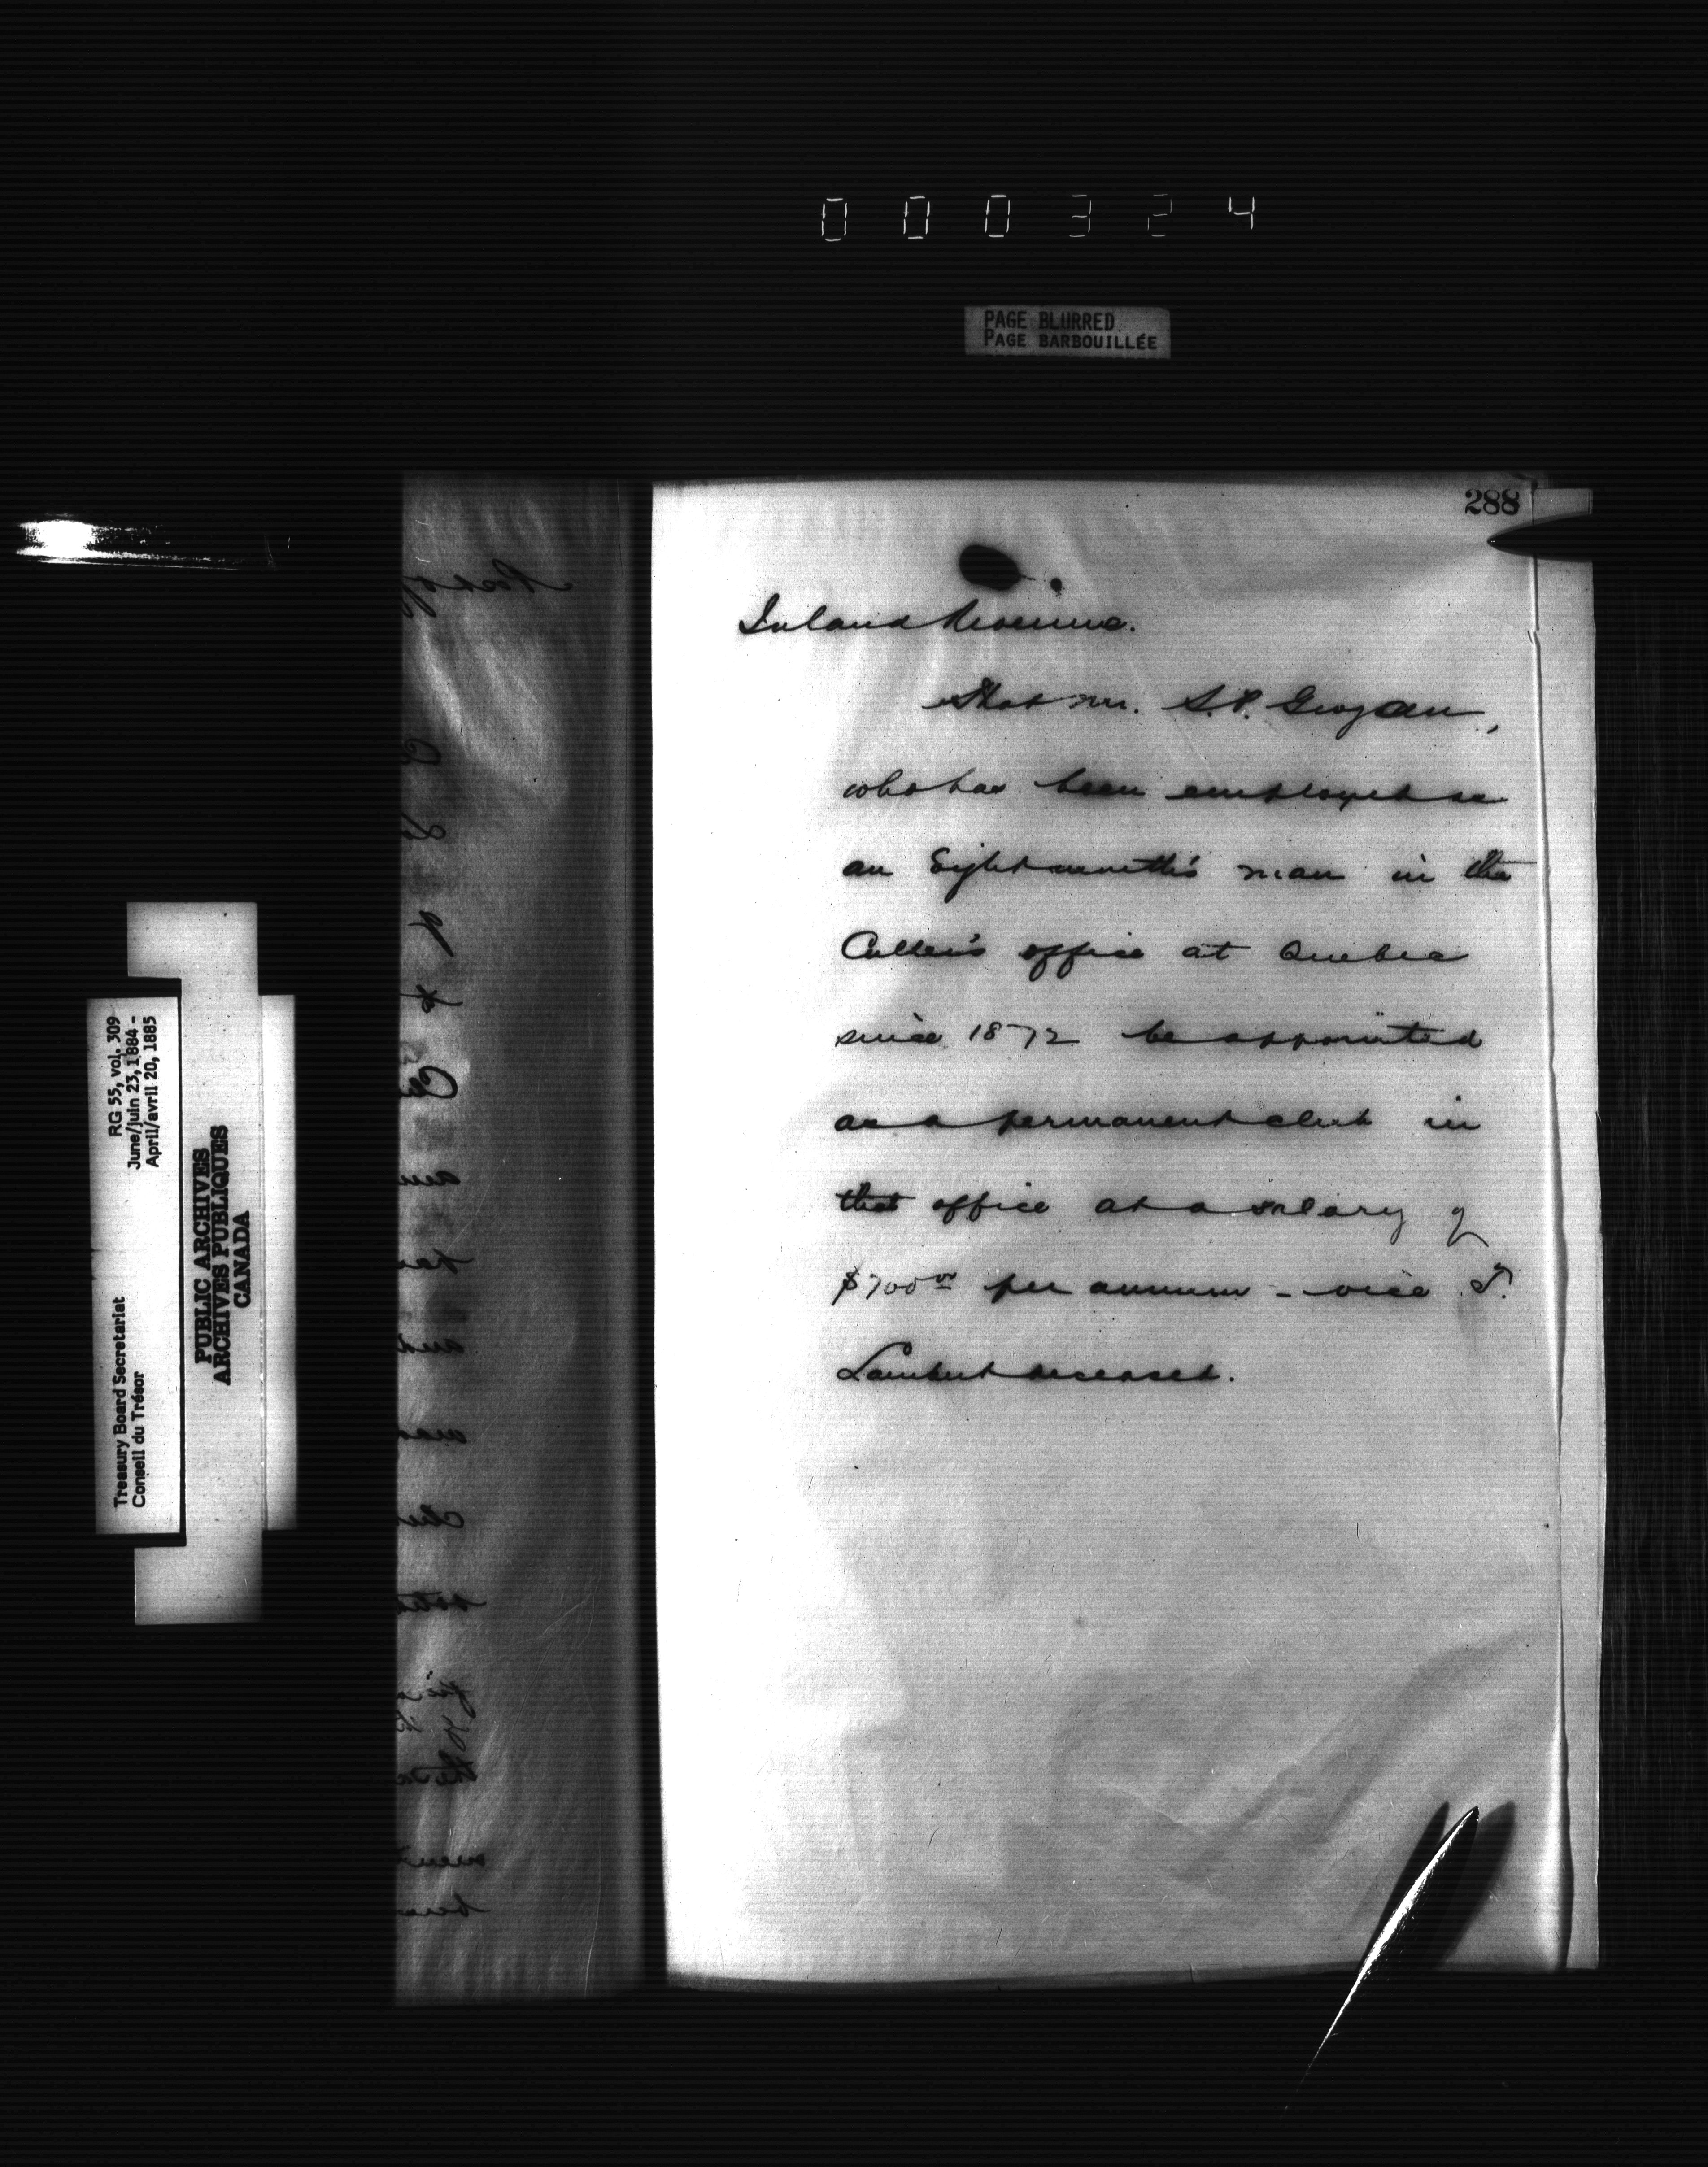 000324
PAGE BLURRED
PAGE BARBOUILLÉE
288
Inland Revenue.
That Mr. S.P. Grogan,
who has been employed as
an Eight month's man in the
Culler's office at Quebec
since 1872 be appointed
as a permanent clerk in
that office at a salary of
$700 00 per annum - vice T.
Lambert deceased.
RG 55, vol. 309
June/juin 23, 1884 -
April/avril 20, 1885
Treasury Board Secretariat
Conseil du Trésor
PUBLIC ARCHIVES
ARCHIVES PUBLIQUES
CANADA